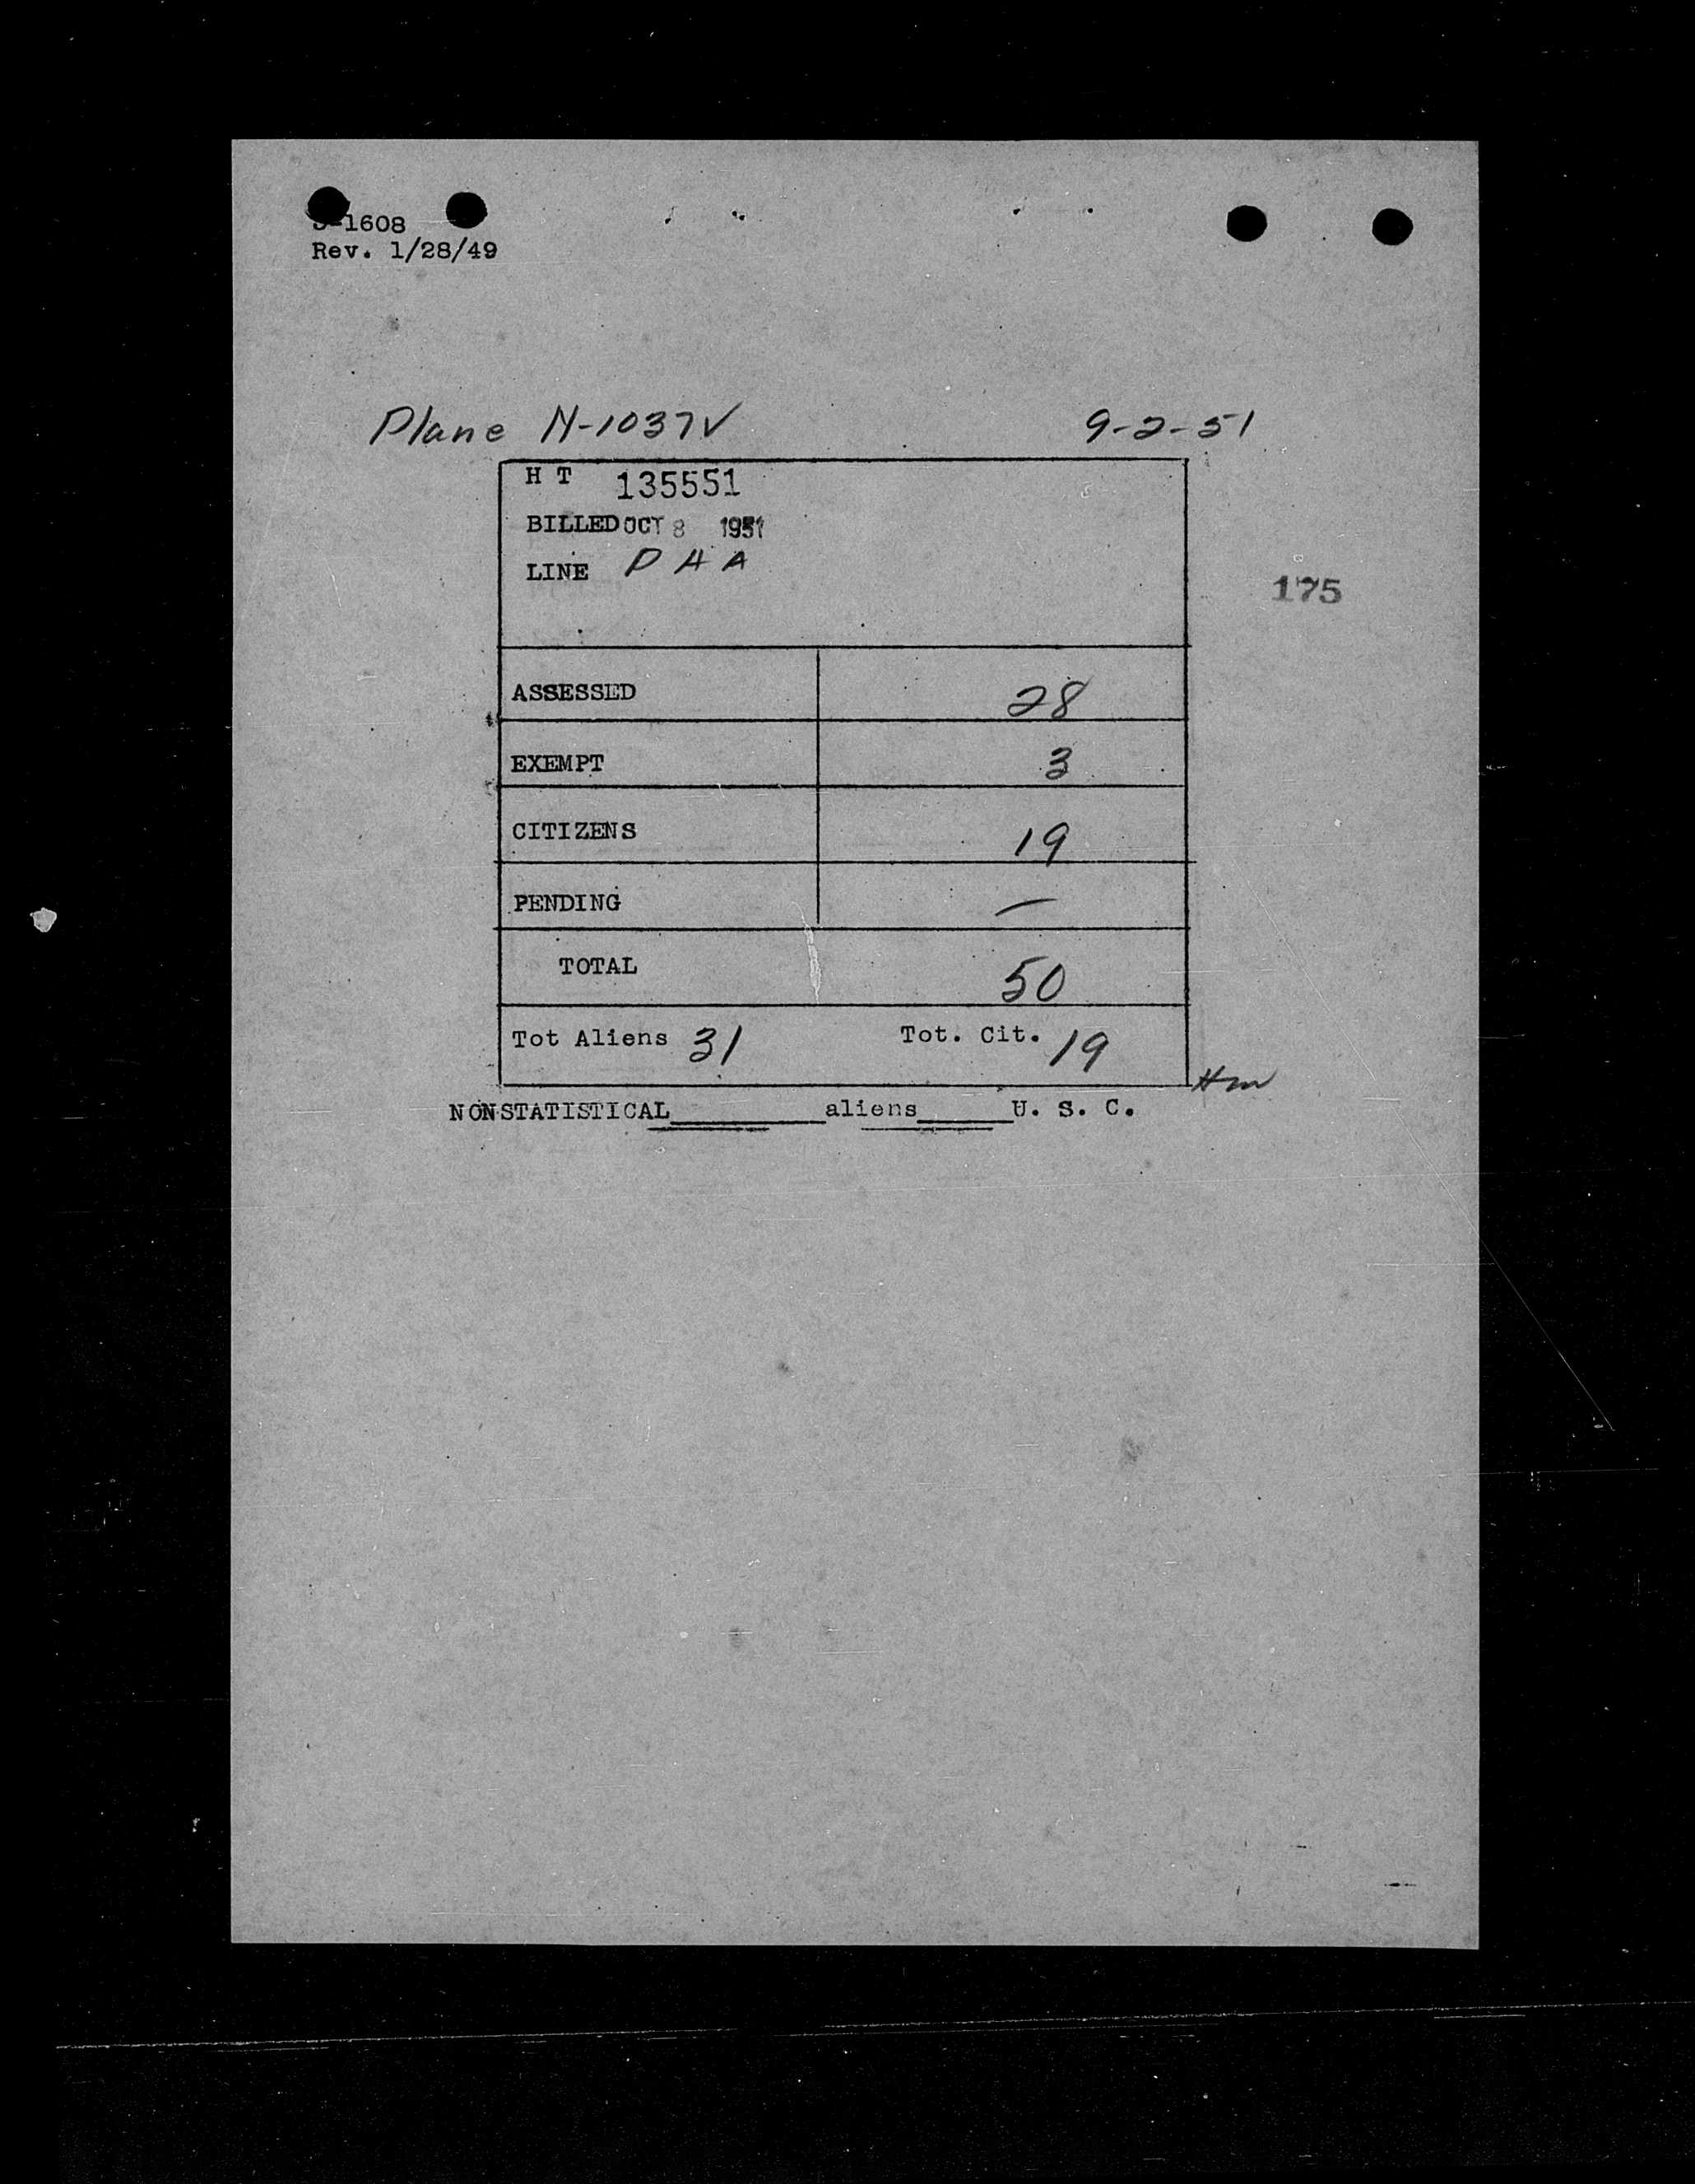 -1608
Rev. 1/28/49
Plane N-1037V 9-2-51
H T 135551
BILLED OCT 8 1951
LINE P A A
175
ASSESSED 28
EXEMPT 3
CITIZENS 19
PENDING —
TOTAL 50
Tot Aliens 31 Tot. Cit. 19
NONSTATISTICAL________aliens_____U. S. C.